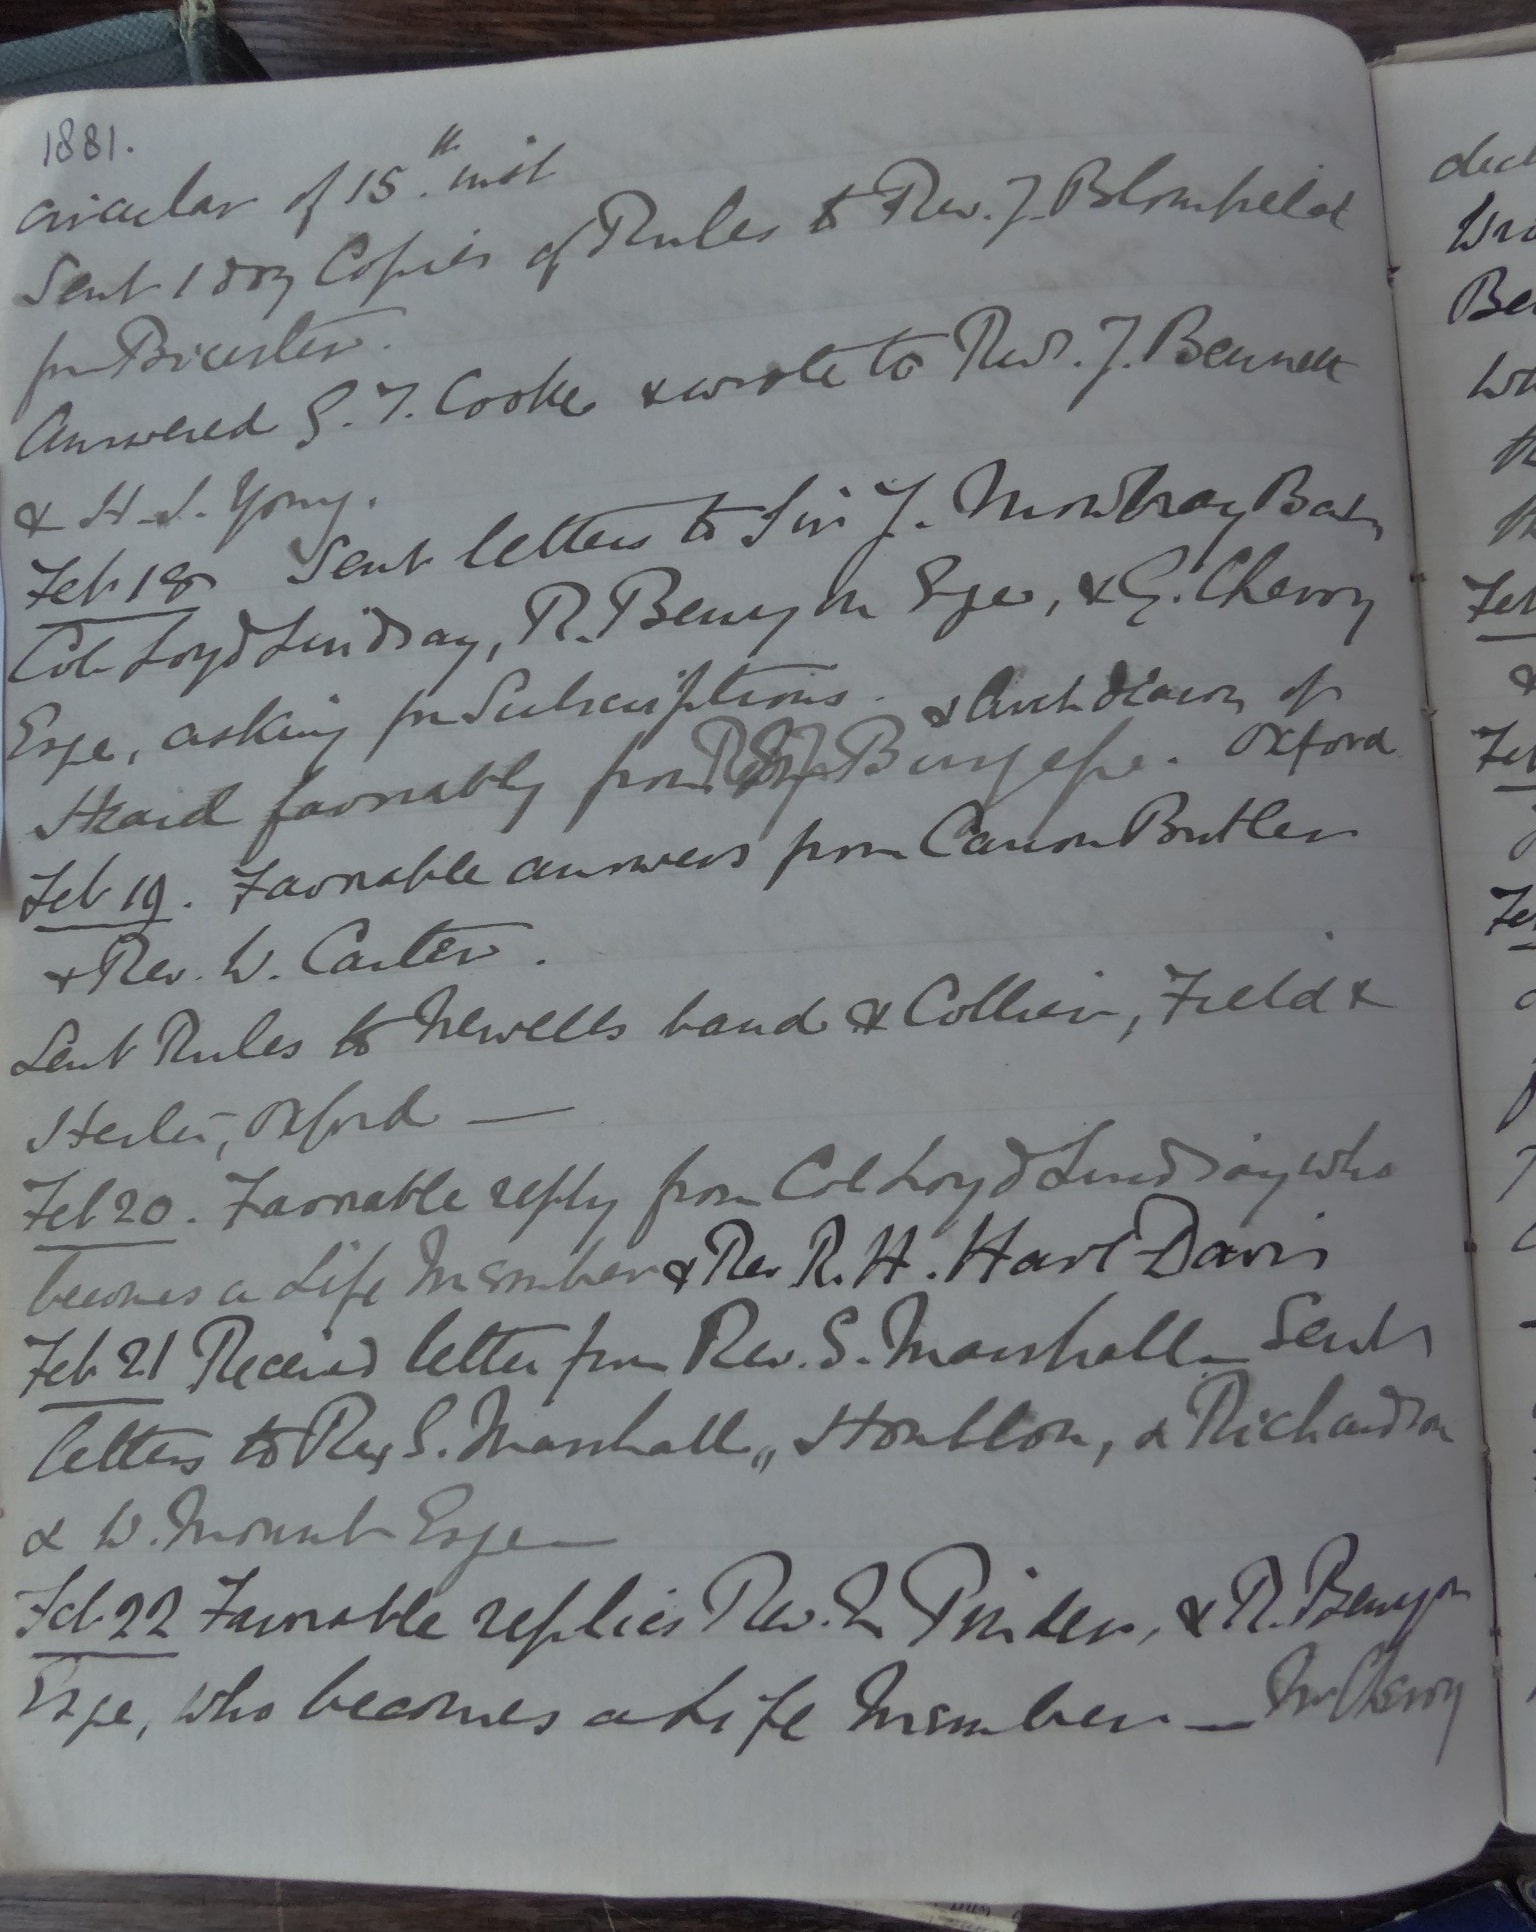 1881.
circular of 15th inst
Sent 1 doz Copies of Rules to Rev. J. Blomfield
for Bicester.
Answered G. F. Cooke & wrote to Rev. J. Bennett
& H. S. Young.
Feb 18 Sent letters to Sir J. Mowbray Bart,
Col. Loyd Lindsay, R. Benyon Esqe, & G. Cherry
Esqe, asking for Subscriptions.
& Archdeacon of
Heard favorably from Burgess. Oxford
Feb 19. Favorable answers from Canon Butler
& Rev. W. Carter.
Sent Rules to Newells band & Collier, Field &
Hester, Oxford —
Feb 20. Favorable reply from Col Loyd Lindsay who
becomes a Life Member & Rev R. H. Hart Davis
Feb 21 Received letter from Rev. S. Marshall — Sent
letters to Rev S. Marshall, „ Houblon, & Richardson
& W. Mount Esqe —
Feb 22 Favorable replies Rev. Pinder, & R. Benyon
Esqe, who becomes a Life Member — Mr Cherry
decl
Wro
Feb
&
Feb
Feb